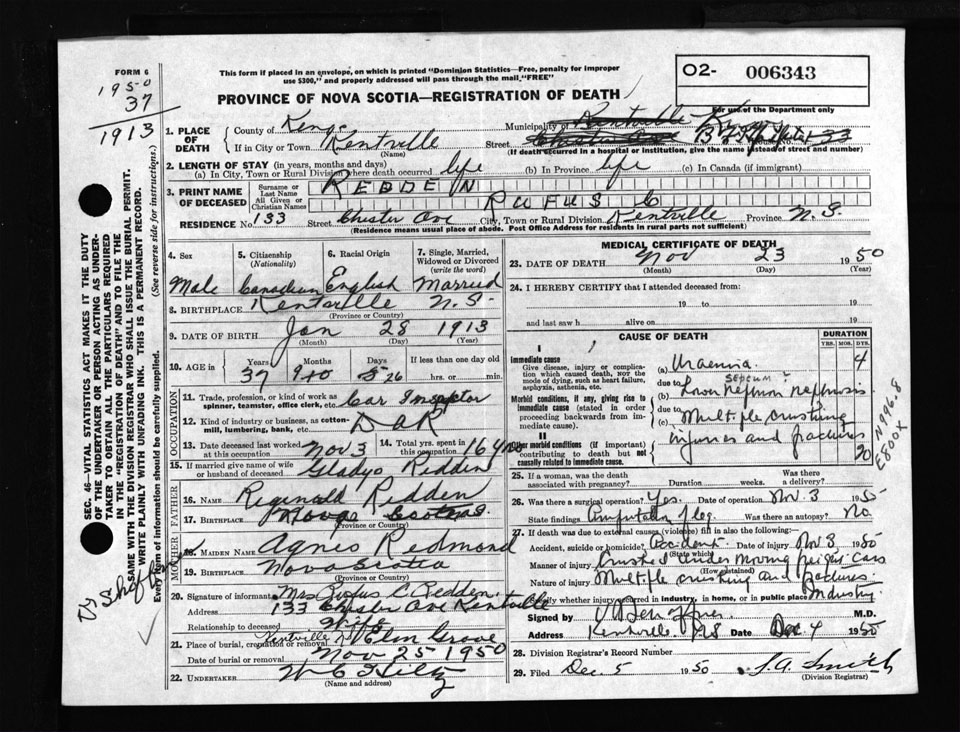 FORM 6
1950
37
1913
This form if placed in an envelope, on which is printed "Dominion Statistics—Free, penalty for improper
use $300," and properly addressed will pass through the mail "FREE"
PROVINCE OF NOVA SCOTIA—REGISTRATION OF DEATH
O2- 006343
For use of the Department only
1. PLACE OF DEATH County of Kings Municipality of Kentville
If in City or Town Kentville (Name) Street Chester Ave House No. 133
(If death occurred in a hospital or institution, give the name instead of street and number)
2. LENGTH OF STAY (in years, months and days)
(a) In City, Town or Rural Division where death occurred life (b) In Province life (c) In Canada (if immigrant)
3. PRINT NAME OF DECEASED Surname or Last Name REDDEN
All Given or Christian Names RUFUS C
RESIDENCE No. 133 Street Chester Ave City, Town or Rural Division Kentville Province N.S.
(Residence means usual place of abode. Post Office Address for residents in rural parts not sufficient)
SEC. 46—VITAL STATISTICS ACT MAKES IT THE DUTY
OF THE UNDERTAKER OR PERSON ACTING AS UNDERTAKER TO OBTAIN ALL THE PARTICULARS REQUIRED
IN THE "REGISTRATION OF DEATH" AND TO FILE THE
SAME WITH THE DIVISION REGISTRAR WHO SHALL ISSUE THE BURIAL PERMIT.
WRITE PLAINLY WITH UNFADING INK. THIS IS A PERMANENT RECORD.
Every item of information should be carefully supplied. (See reverse side for instructions.)
4. Sex Male
5. Citizenship (Nationality) Canadian
6. Racial Origin English
7. Single, Married, Widowed or Divorced (write the word) Married
8. BIRTHPLACE Kentville N.S. (Province or Country)
9. DATE OF BIRTH Jan 28 1913
(Month) (Day) (Year)
10. AGE in Years 37 Months 9 Days 26 If less than one day old hrs. or min.
OCCUPATION
11. Trade, profession, or kind of work as spinner, teamster, office clerk, etc. Car Inspector
12. Kind of industry or business, as cotton-mill, lumbering, bank, etc. DAR
13. Date deceased last worked at this occupation Nov 3 14. Total yrs. spent in this occupation 16 yrs
15. If married give name of wife or husband of deceased Gladys Redden
FATHER
16. NAME Reginald Redden
17. BIRTHPLACE Nova Scotia (Province or Country)
MOTHER
18. MAIDEN NAME Agnes Redmond
19. BIRTHPLACE Nova Scotia
(Province or Country)
20. Signature of informant Mrs Rufus C. Redden
Address 133 Chester Ave Kentville
Relationship to deceased Wife
21. Place of burial, cremation or removal Kentville Elm Grove
Date of burial or removal Nov 25 1950
22. UNDERTAKER W C Hiltz
(Name and address)
MEDICAL CERTIFICATE OF DEATH
23. DATE OF DEATH Nov 23 1950
(Month) (Day) (Year)
24. I HEREBY CERTIFY that I attended deceased from:
19 to 19
and last saw h alive on 19
CAUSE OF DEATH
DURATION
YRS. MOS. DYS.
I
Immediate cause
Give disease, injury or complication which caused death, not the mode of dying, such as heart failure, asphyxia, asthenia, etc.
(a) Uraemia 4
due to
(b) Lower Nephron nephrosis
Morbid conditions, if any, giving rise to immediate cause (stated in order proceeding backwards from immediate cause).
due to
(c) Multiple crushing
injuries and fractures 20
II
Other morbid conditions (if important) contributing to death but not causally related to immediate cause.
N996.8
E800X
25. If a woman, was the death associated with pregnancy? Duration weeks. Was there a delivery?
26. Was there a surgical operation? Yes. Date of operation Nov. 3 1950
State findings Amputation of leg. Was there an autopsy? No
27. If death was due to external causes (violence) fill in also the following:
Accident, suicide or homicide? Accident (State which) Date of injury Nov 3 1950
Manner of injury Crushed under moving freight cars
(How sustained)
Nature of injury Multiple crushing and fractures.
Specify whether injury occurred in industry, in home, or in public place Industry
Signed by M.D.
Address Kentville NS Date Dec 4 1950
28. Division Registrar's Record Number
29. Filed Dec. 5 1950
(Division Registrar)